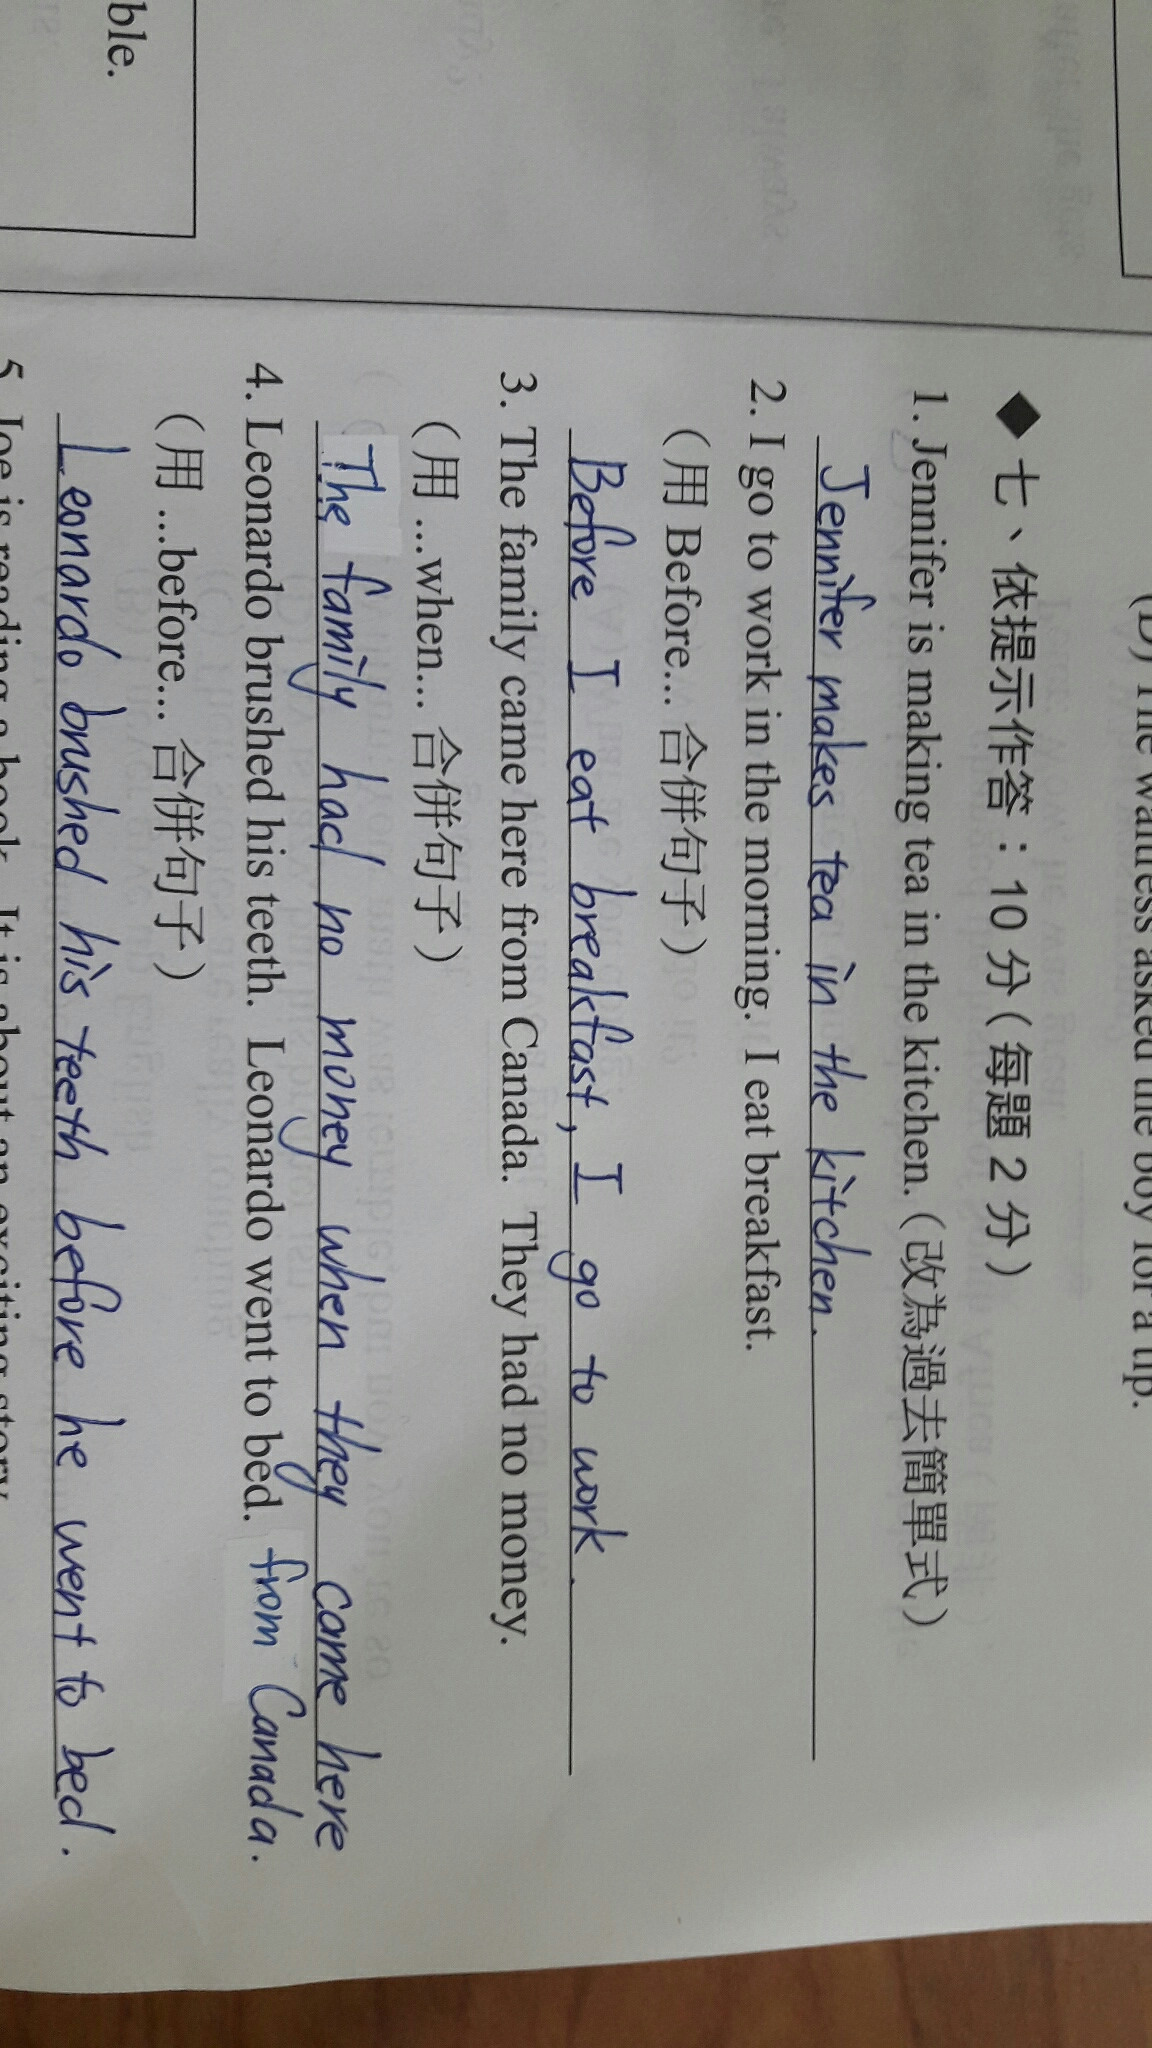 ble.
(D) The waitress asked the boy for a tip.
◆ 七、依提示作答：10 分 ( 每題 2 分 )
1. Jennifer is making tea in the kitchen. ( 改為過去簡單式 )
Jennifer makes tea in the kitchen.
2. I go to work in the morning. I eat breakfast.
( 用 Before... 合併句子 )
Before I eat breakfast, I go to work.
3. The family came here from Canada. They had no money.
( 用 ...when... 合併句子 )
The family had no money when they came here
from Canada.
4. Leonardo brushed his teeth. Leonardo went to bed.
( 用 ...before... 合併句子 )
Leonardo brushed his teeth before he went to bed.
5. Joe is reading a book. It is about an exciting story.